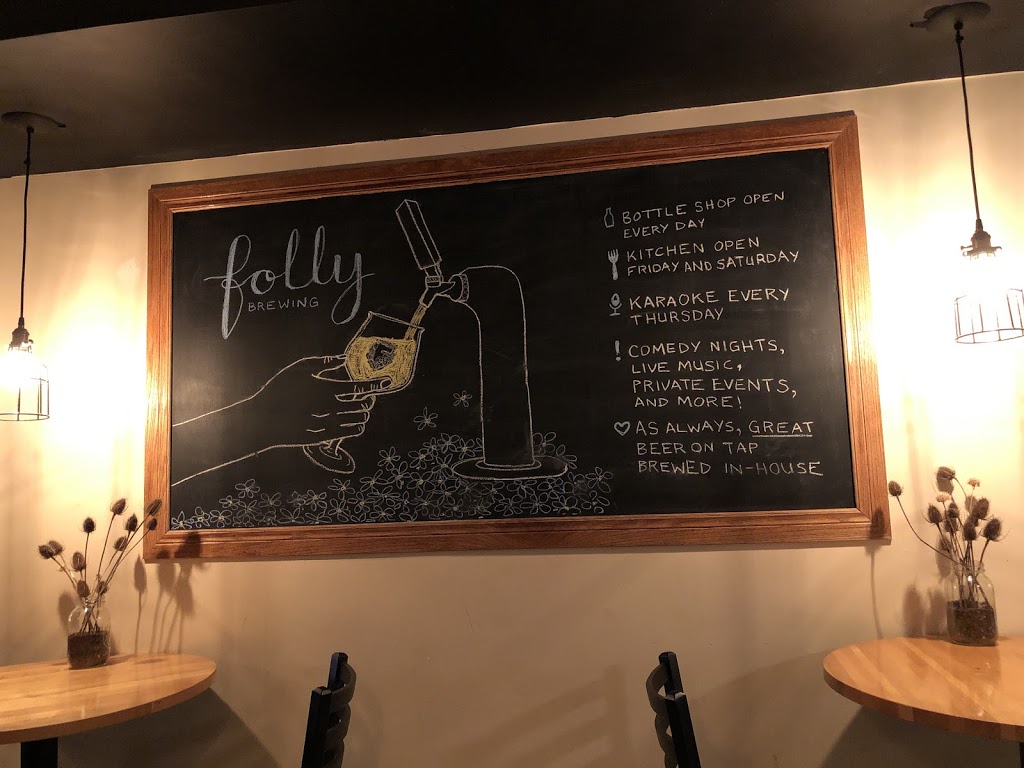 folly
BREWING
BOTTLE SHOP OPEN
EVERY DAY
KITCHEN OPEN
FRIDAY AND SATURDAY
KARAOKE EVERY
THURSDAY
! COMEDY NIGHTS,
LIVE MUSIC,
PRIVATE EVENTS,
AND MORE!
AS ALWAYS, GREAT
BEER ON TAP
BREWED IN-HOUSE